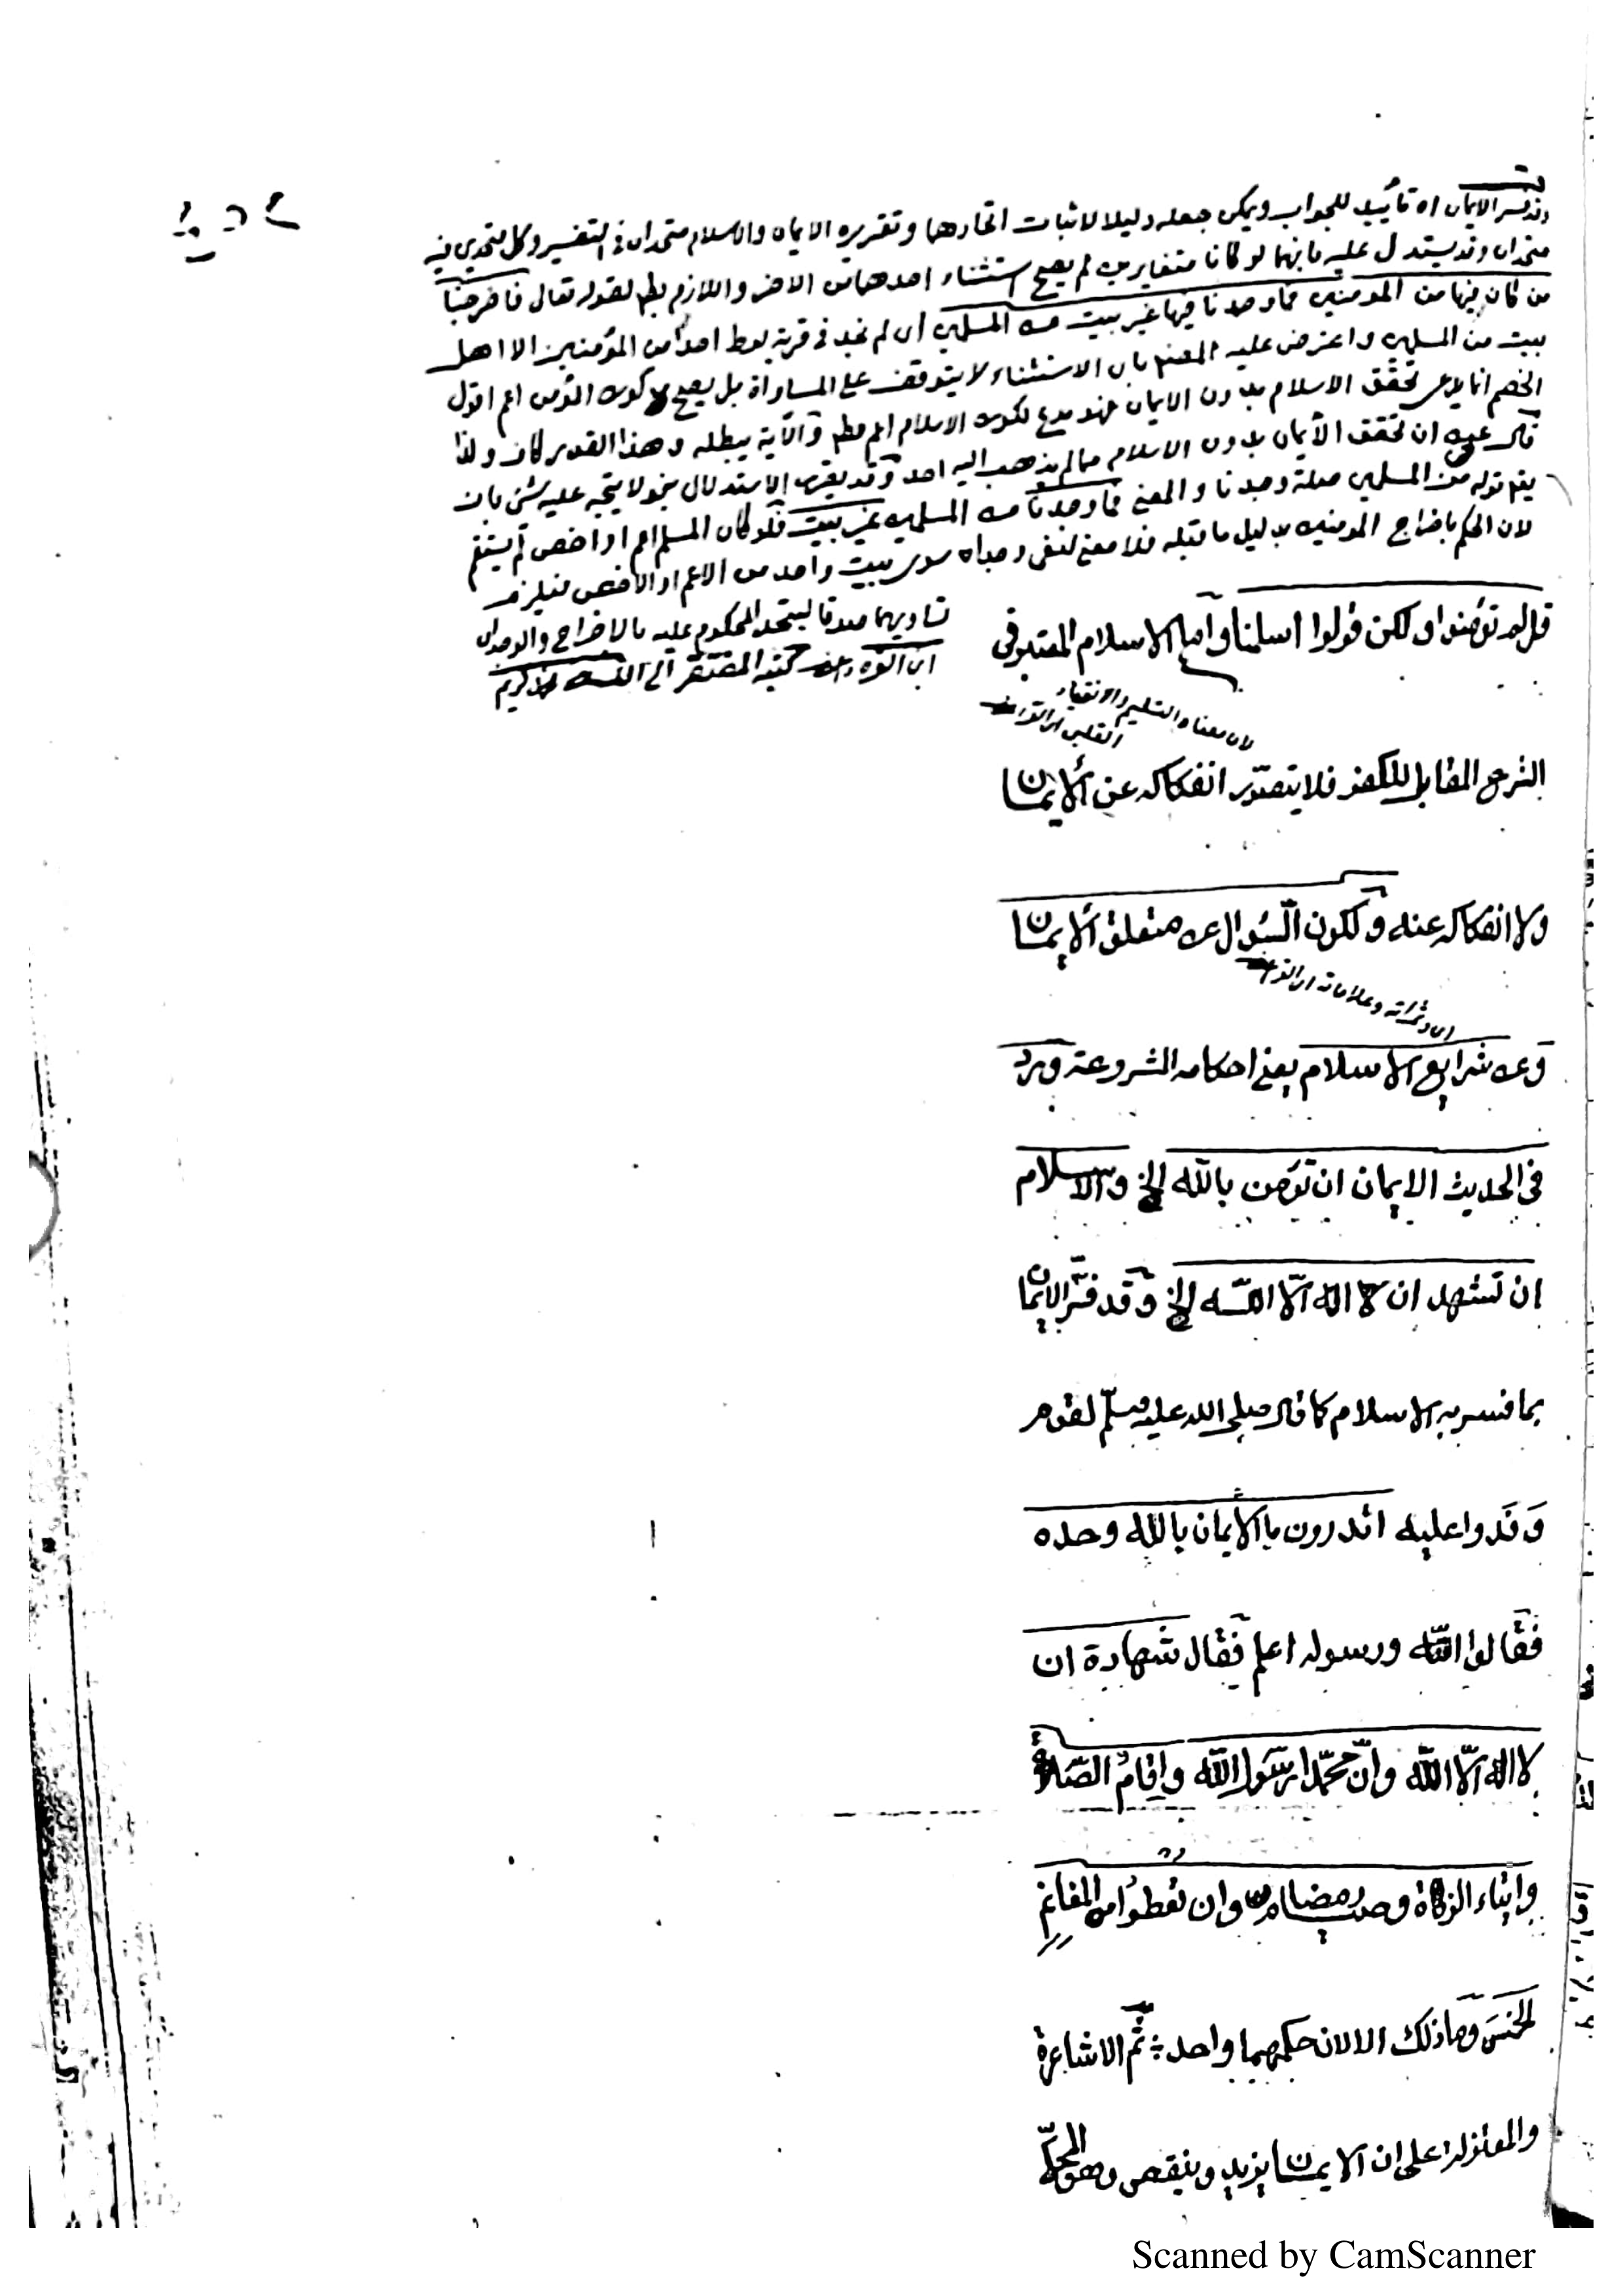 وقد فسر الايمان اه تأييد للجواب ويمكن جعله دليلا لاثبات اتحادهما وتقريره الايمان والاسلام متحدان في التفسير وكل متحدين فيه
متحدان وقد يستدل عليه بانهما لو كانا متغايرين لم يصح استثناء احدهما من الاخر واللازم بط لقوله تعالى فاخرجنا
من كان فيها من المومنين فما وجدنا فيها غير بيت من المسلمين اى لم نجد في قرية لوط احدا من المؤمنين الا اهل
بيت من المسلمين واعترض عليه بان الاستثناء لا يتوقف على المساواة بل يصح لكون المؤمن اعم اقول
الخصم انما يدعى تحقق الاسلام بدون الايمان فهو مدع لكون الاسلام اعم والآية يبطله وهذا القدر كاف ولذا
قال ان تحقق الايمان بدون الاسلام مما لم يذهب اليه احد وقد يقرر الاستدلال بنحو لا يتجه عليه شئ بان
قوله من المسلمين صلة وجدنا والمعنى فما وجدنا من المسلمين غير بيت فلو كان المسلم اعم او اخص لم يستقم
لان الحكم باخراج المومنين بدليل ما قبله فلا معنى لنفى وجدان سوى بيت واحد من الاعم او الاخص فيلزم
تساويهما صدقا ليتحد المحكوم عليه بالاخراج والوجدان
كتبه المفتقر الى الله
قل لم تؤمنوا ولكن قولوا اسلمنا واما الاسلام المعتبر فى
لان معناه التسليم والانقياد
القلبى
الشرع المقابل للكفر فلا يتصور انفكاكه عن الايمان
ولا انفكاكه عنه ولكون السؤال عن متعلق الايمان
اى ثمراته وعلاماته
وعن شرايع الاسلام يعنى احكامه المشروعة ورد
فى الحديث الايمان ان تؤمن بالله الخ والاسلام
ان تشهد ان لا اله الا الله الخ وقد فسّر الايمان
بما فسر به الاسلام كما قال صلى الله عليه وسلّم لقوم
وَفَدوا عليه اتدرون ما الايمان بالله وحده
فقالوا الله ورسوله اعلم فقال شهادة ان
لا اله الّا الله وانّ محمّدا رسول الله واقامُ الصّلاة
وايتاء الزكاة وصيام رمضان وان تعطوا من المغانم
الخمسَ وما ذلك الا لان حكمهما واحد ثم الاشاعرة
والمعتزلة على ان الايمان يزيد وينقص وهو المحكىّ
Scanned by CamScanner